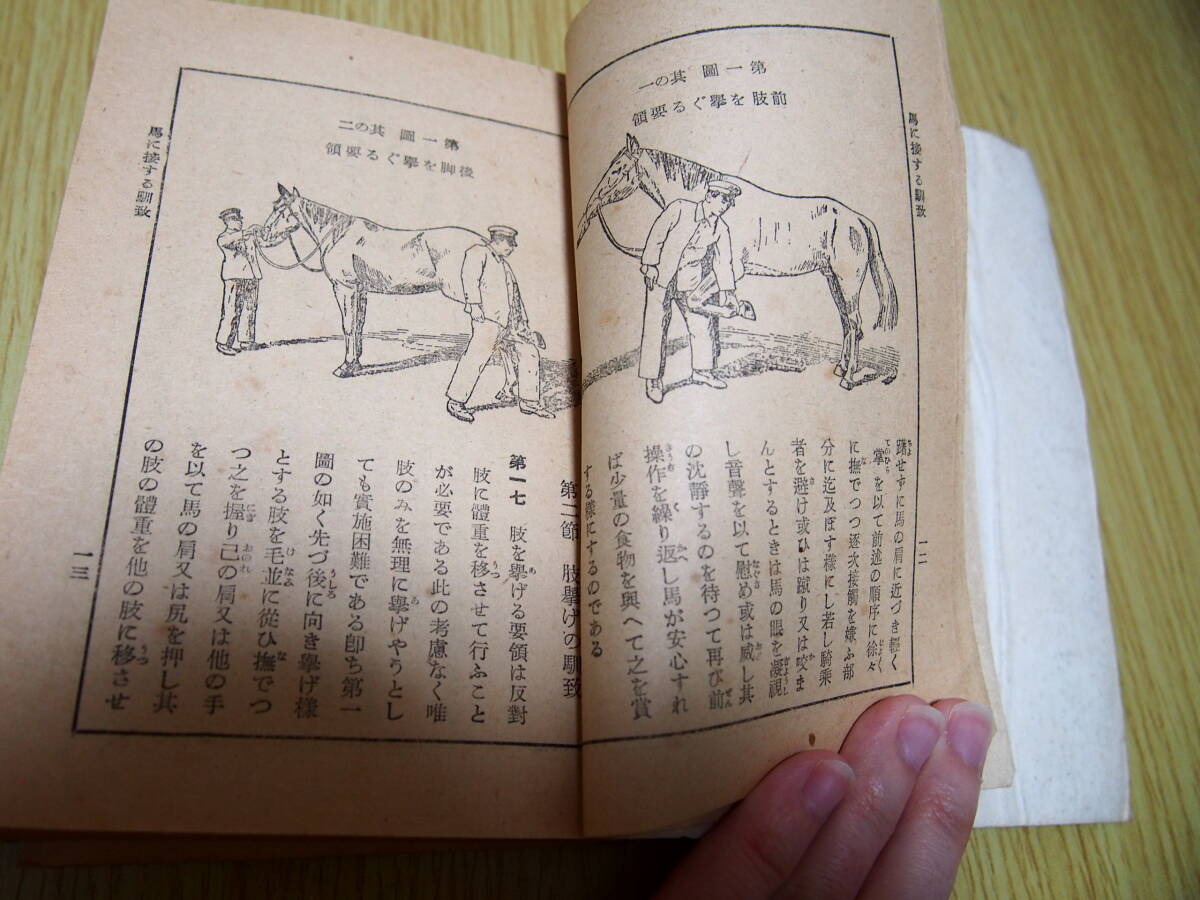 馬に接する馴致
一二
第一圖 其の一
前肢を擧ぐる要領
躇せずに馬の肩に近づき輕く
掌を以て前述の順序に徐々
に撫でつつ逐次接觸を嫌ふ部
分に迄及ぼす樣にし若し騎乘
者を避け或ひは蹴り又は咬ま
んとするときは馬の眼を凝視
し音聲を以て慰め或は威し其
の沈靜するのを待つて再び前
操作を繰り返し馬が安心すれ
ば少量の食物を與へて之を賞
する樣にするのである
第一圖 其の二
後脚を擧ぐる要領
第二節 肢擧げの馴致
第一七 肢を擧げる要領は反對
肢に體重を移させて行ふこと
が必要である此の考慮なく唯
肢のみを無理に擧げやうとし
ても實施困難である卽ち第一
圖の如く先づ後に向き擧げ樣
とする肢を毛並に從ひ撫でつ
つ之を握り己の肩又は他の手
を以て馬の肩又は尻を押し其
の肢の體重を他の肢に移させ
馬に接する馴致
一三